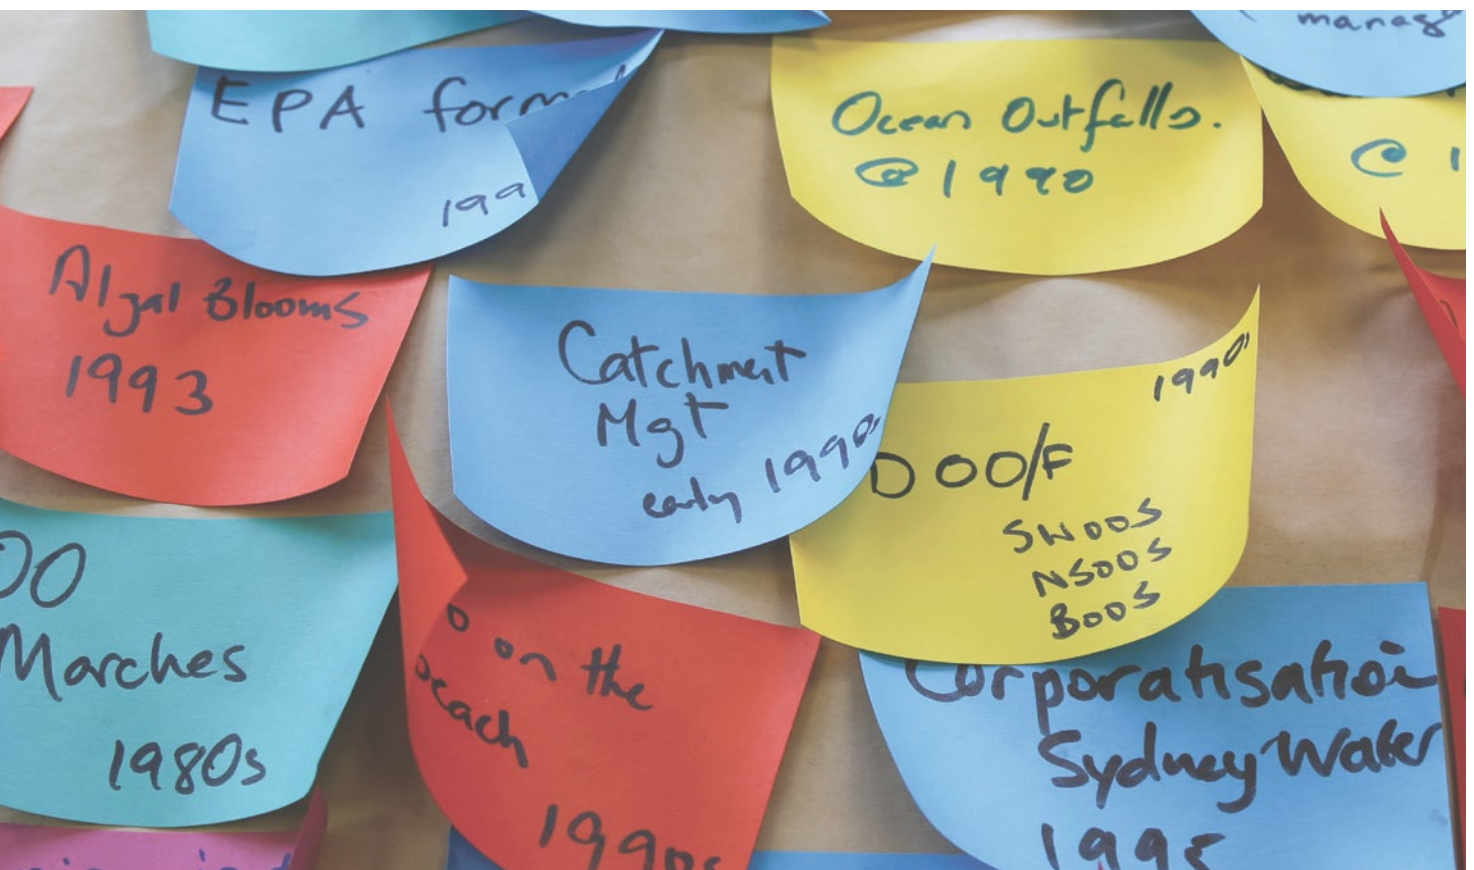 manag
EPA form
199
Ocean Outfalls.
@ 1990
@ 1
Algal Blooms
1993
Catchment
Mgt
early 1990s
1990s
DOO/F
SWOOS
NSOOS
BOOS
OO
Marches
1980s
on the
beach
1990s
Corporatisation
Sydney Water
1995